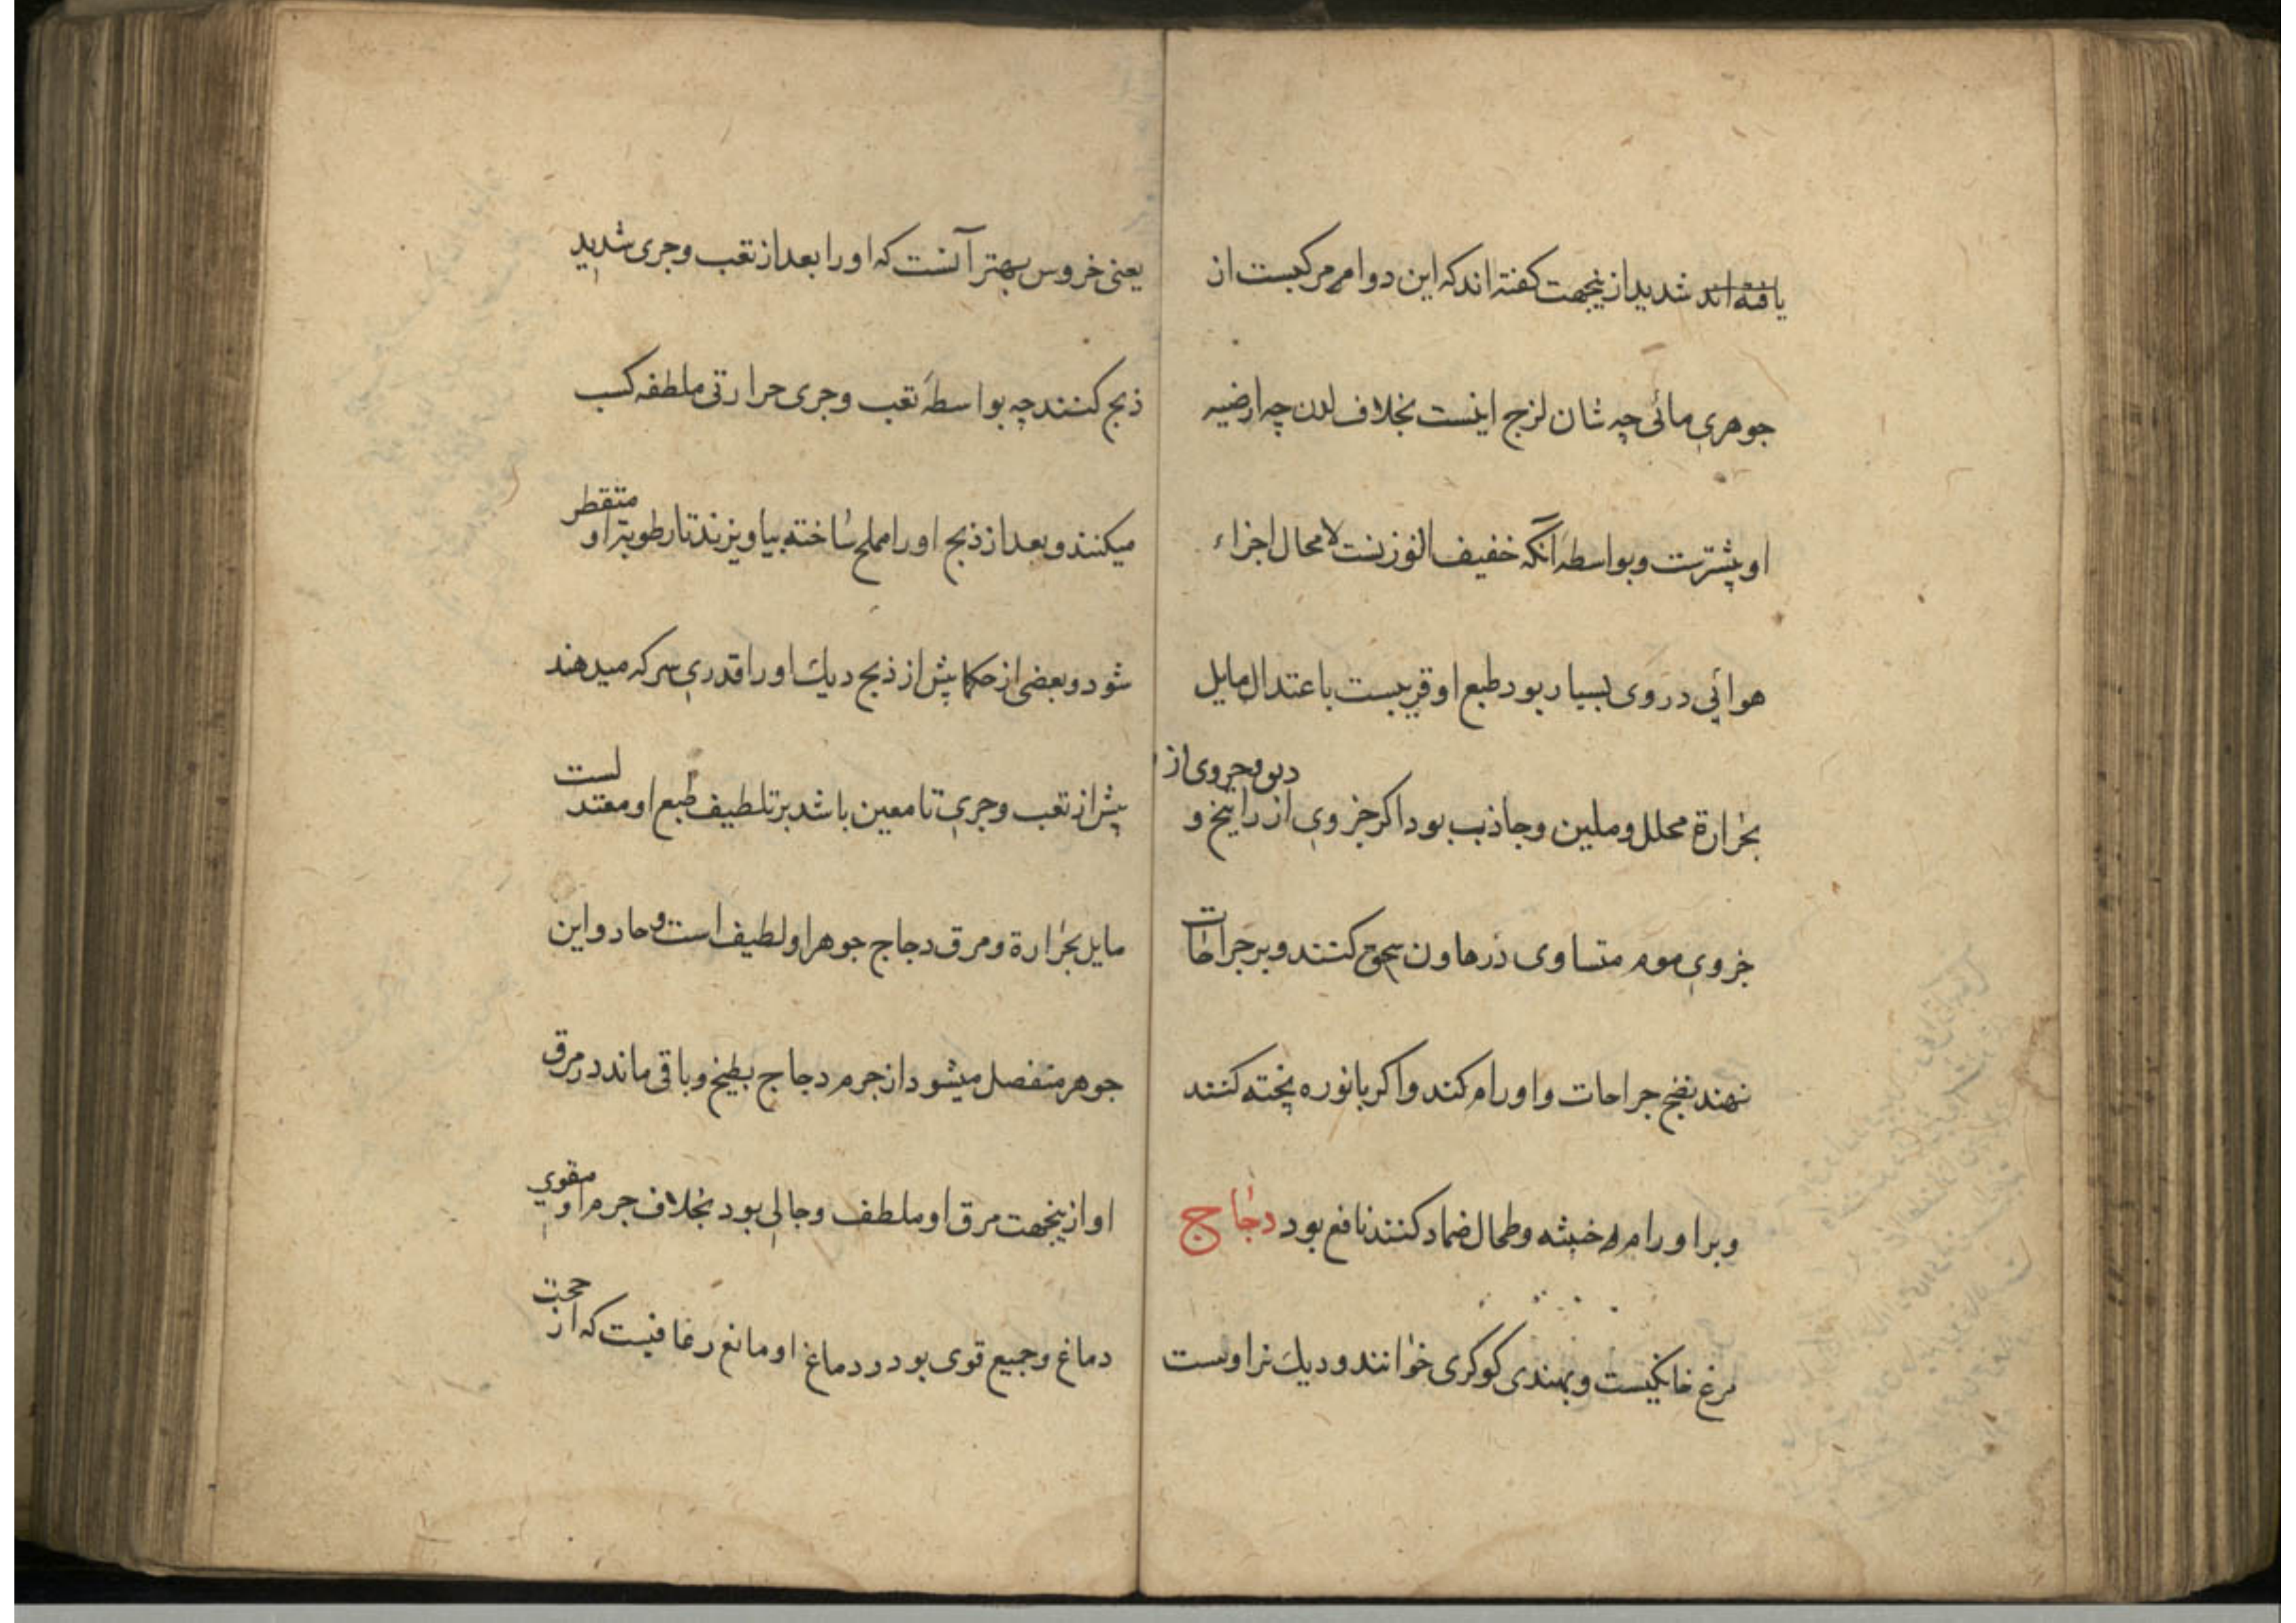 یافته اند شدید ازینجهت کفته اند که این دوا مرکبست از
جوهری مائی چه شان لزج اینست بخلاف لدن چه ارضیه
او بیشترست و بواسطهٔ آنکه خفیف الوزنست لا محال اجزاء
هوائی در وی بسیار بود طبع او قریبست باعتدال مایل
بحرارة محلل و ملین و جاذب بود اکر جزوی از راتینج و
جزوی از
جزوی موم متساوی در هاون سحق کنند و بر جراحات
نهند نضج جراحات و اورام کند و اکر با نوره پخته کنند
و بر اورام خبیثه و طحال ضماد کنند نافع بود دجاج
مرغ خانکیست و بهندی کوکری خوانند و دیك نر اوست
یعنی خروس بهتر آنست که او را بعد از تعب و جری شدید
ذبح کنند چه بواسطهٔ تعب و جری حرارتی ملطفه کسب
میکنند و بعد از ذبح او را مملح ساخته بیاویزند تا رطوبت او متقطر
شود و بعضی از حکما پیش از ذبح دیك او را قدری سرکه میدهند
پیش از تعب و جری تا معین باشد بر تلطیف طبع او معتدلست
مایل بحرارة و مرق دجاج جوهر او لطیف است و حاد و این
جوهر منفصل میشود از جرم دجاج بطبخ و باقی ماند در مرق
او ازینجهت مرق او ملطف و جالی بود بخلاف جرم او مقوی
دماغ و جمیع قوی بود و دماغ او مانع رعافیست که از حجب